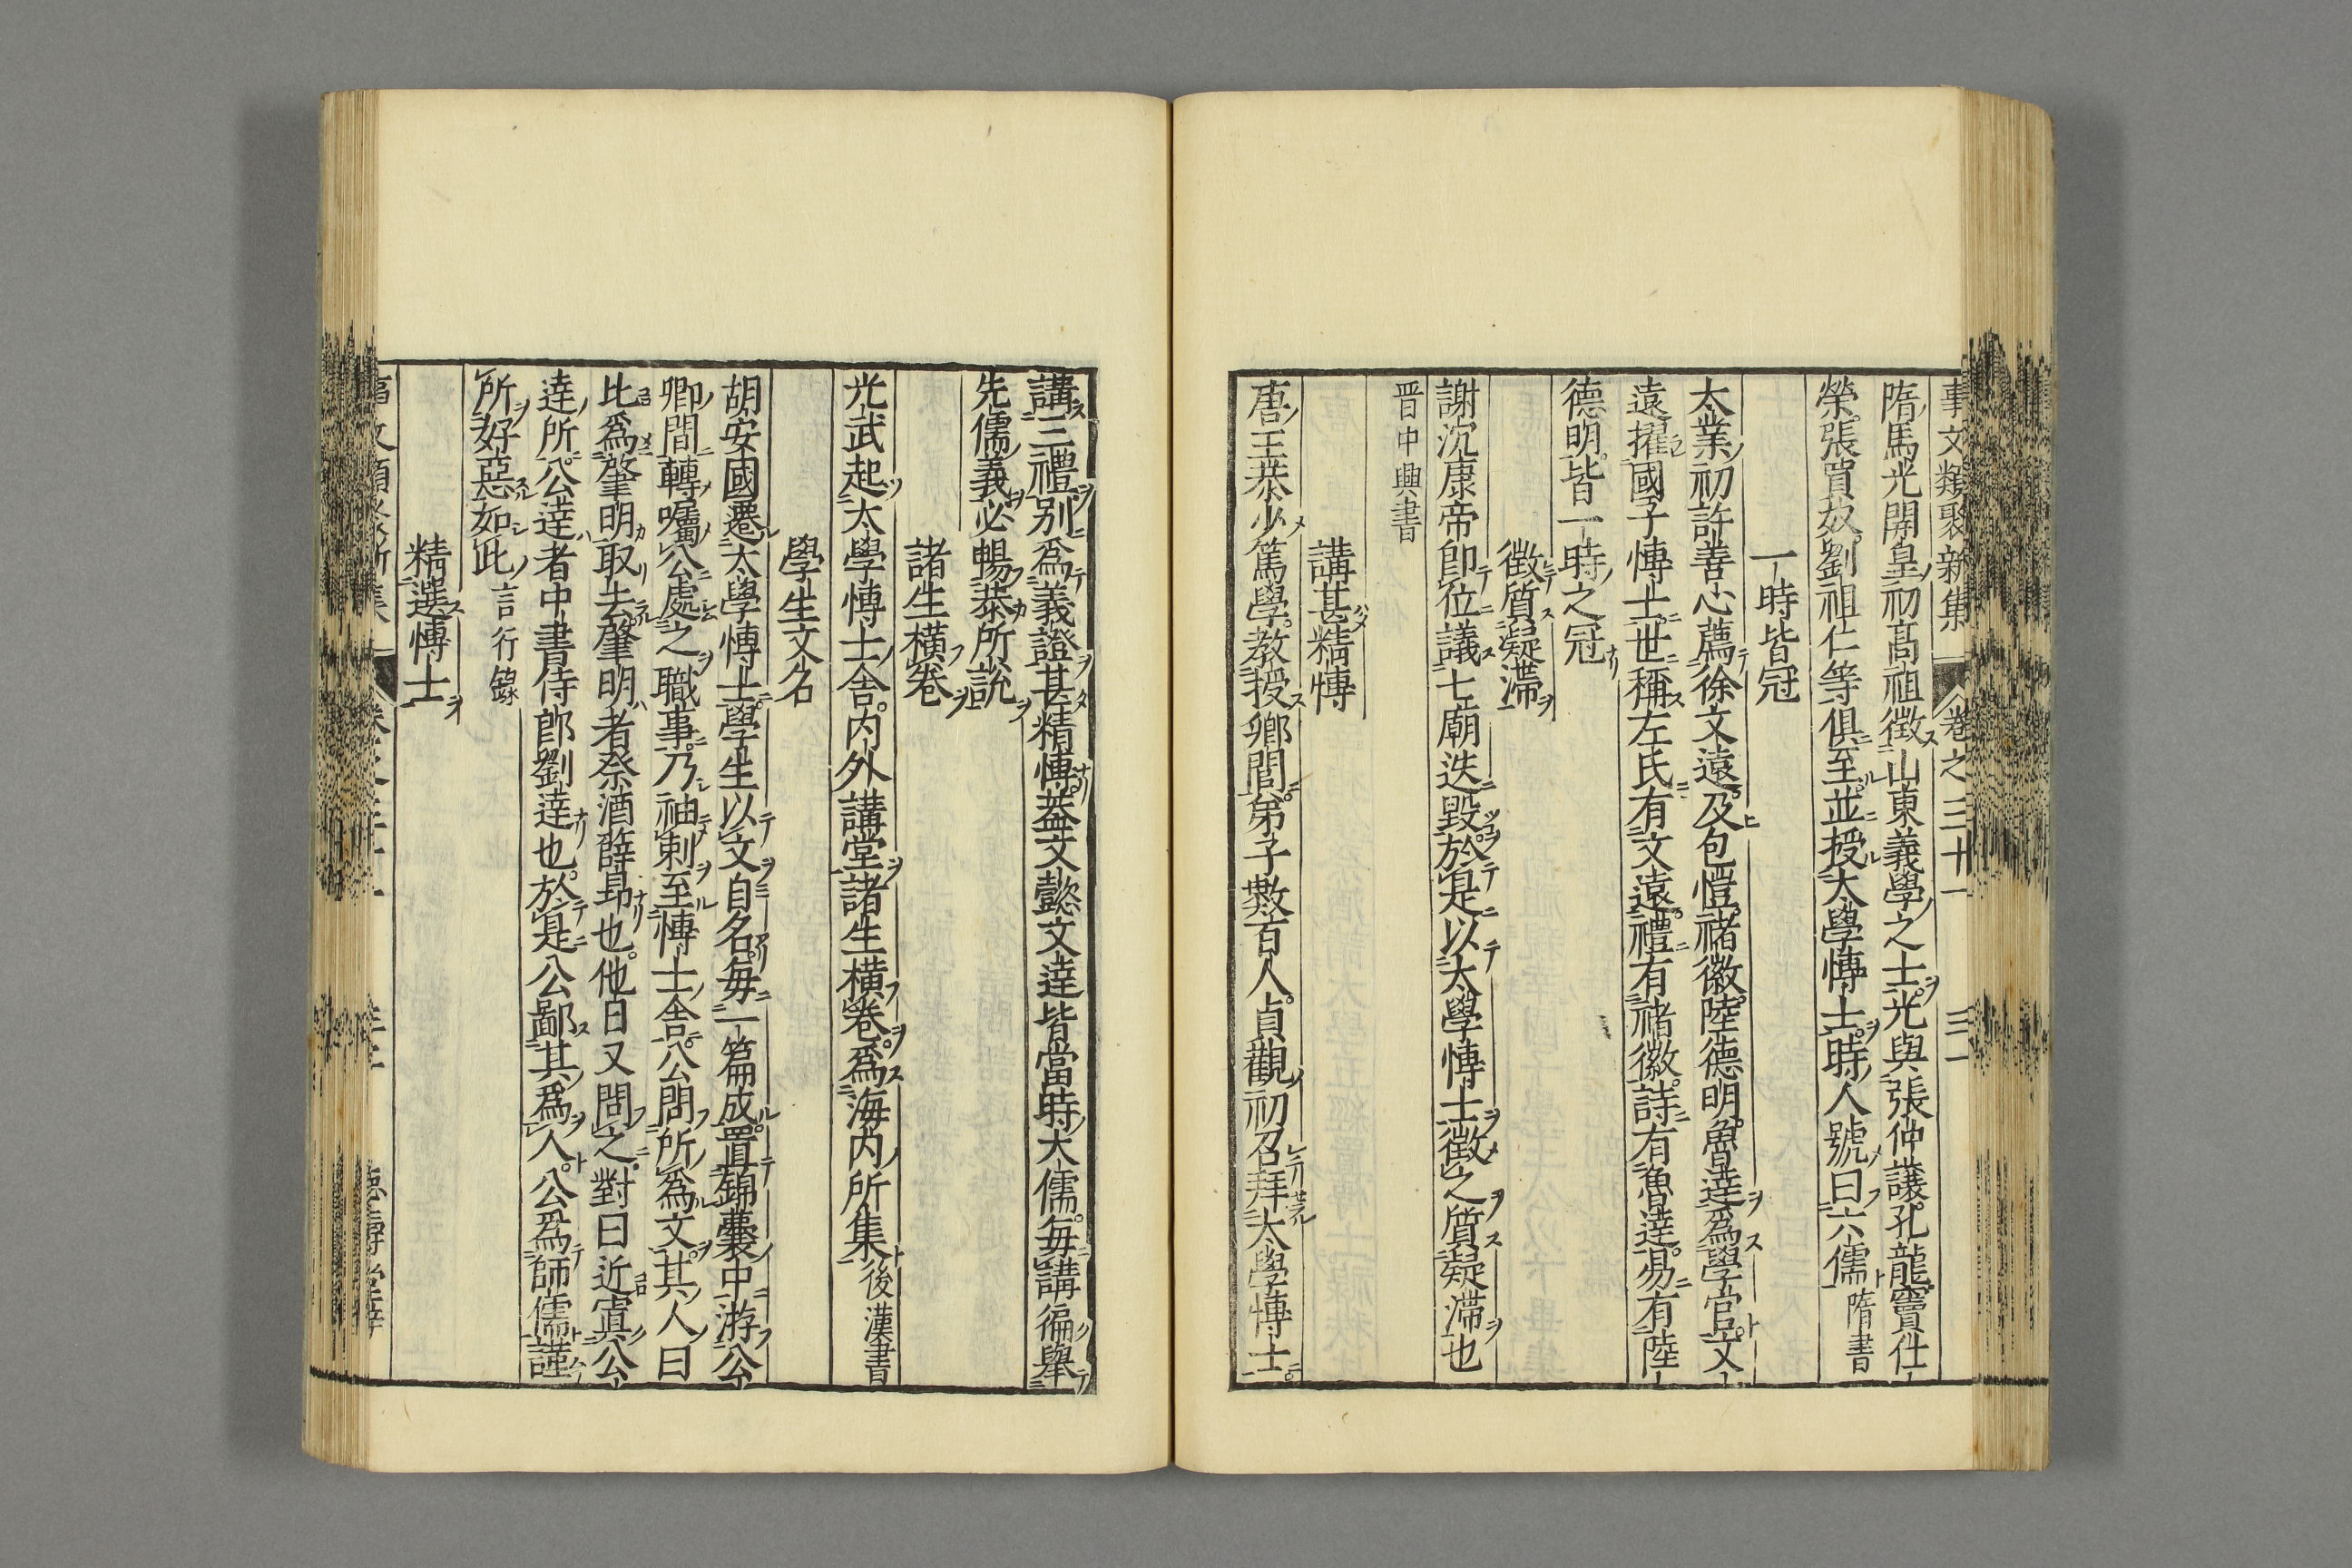 事文類聚新集 卷之三十一 三一
隋馬光開皇初髙祖徴山東義學之士光與張仲讓孔龍竇仕
榮張買奴劉祖仁等俱至並授太學博士時人號曰六儒 隋書
一時皆冠
大業初許善心薦徐文遠及包愷禇徽陸德明魯達爲學官文
遠擢國子博士世稱左氏有文遠禮有禇徽詩有魯達易有陸
德明皆一時之冠
徴質凝滯
謝沉康帝即位議七廟迭毀於是以太學博士徴之質凝滯也
晋中興書
講甚精博
唐王恭少篤學教授鄉閭弟子數百人貞觀初召拜太學博士
講三禮别爲義證甚精博葢文懿文達皆當時大儒每講徧舉
先儒義必暢恭所說
諸生横卷
光武起太學博士舎内外講堂諸生横卷爲海内所集 後漢書
學生文名
胡安國遷太學博士學生以文自名每一篇成置錦囊中游公
卿間轉囑公處之職事乃袖刺至博士舎公問所爲文其人曰
比爲肇明取去肇明者祭酒薛昻也他日又問之對曰近寘公
達所公達者中書侍郎劉達也於是公鄙其爲人公爲師儒謹
所好惡如此 言行録
精選博士